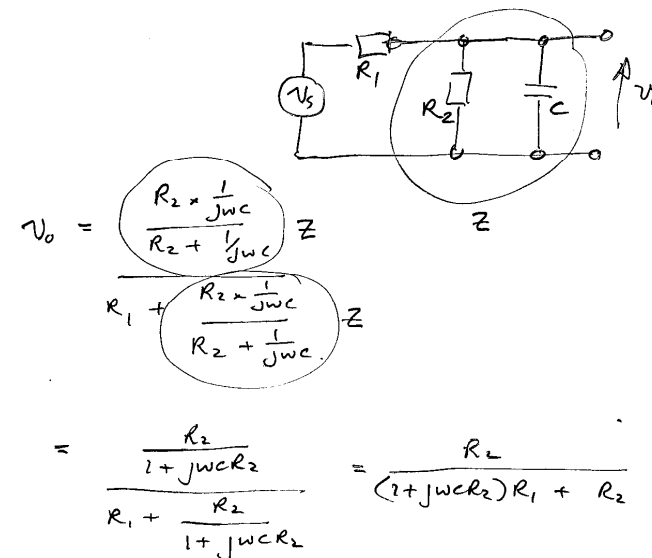 R₁
vₛ
R₂
C
Z
v₀ = \frac{\frac{R₂ × \frac{1}{jωC}}{R₂ + 1/jωC}}{R₁ + \frac{R₂ × \frac{1}{jωC}}{R₂ + \frac{1}{jωC}}}
Z
Z
= \frac{\frac{R₂}{1 + jωCR₂}}{R₁ + \frac{R₂}{1 + jωCR₂}} = \frac{R₂}{(1 + jωCR₂)R₁ + R₂}